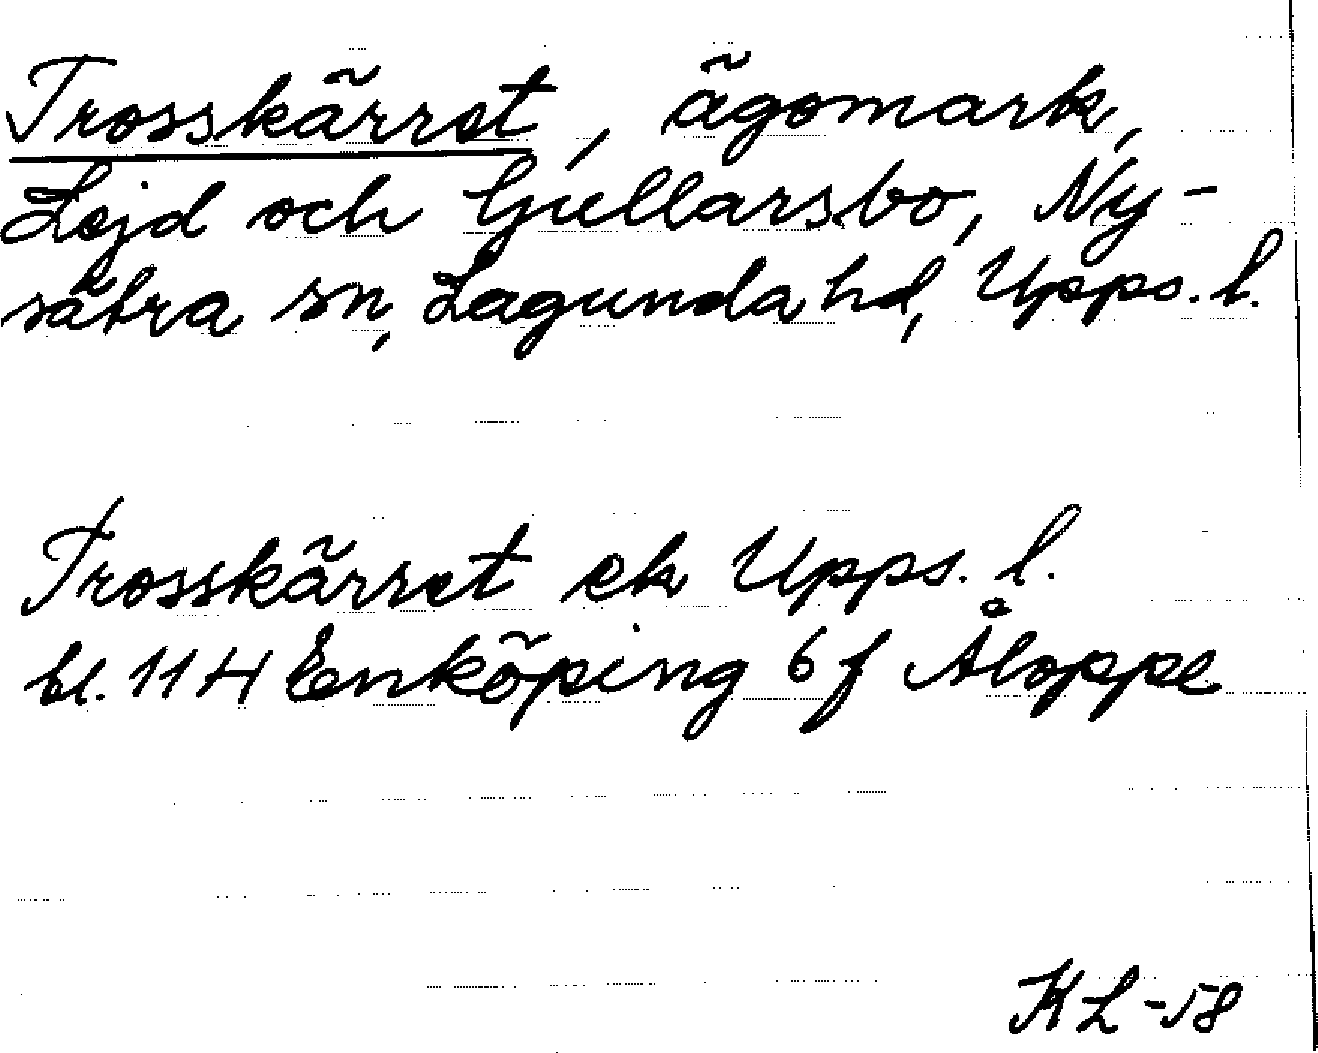 Trosskärret, ägomark,
Lejd och Gjullarsbo, Ny-
sätra sn, Lagunda hd, Upps. l.
Trosskärret ek Upps. l.
bl. 114 Enköping 6 f Åloppe
KL-58